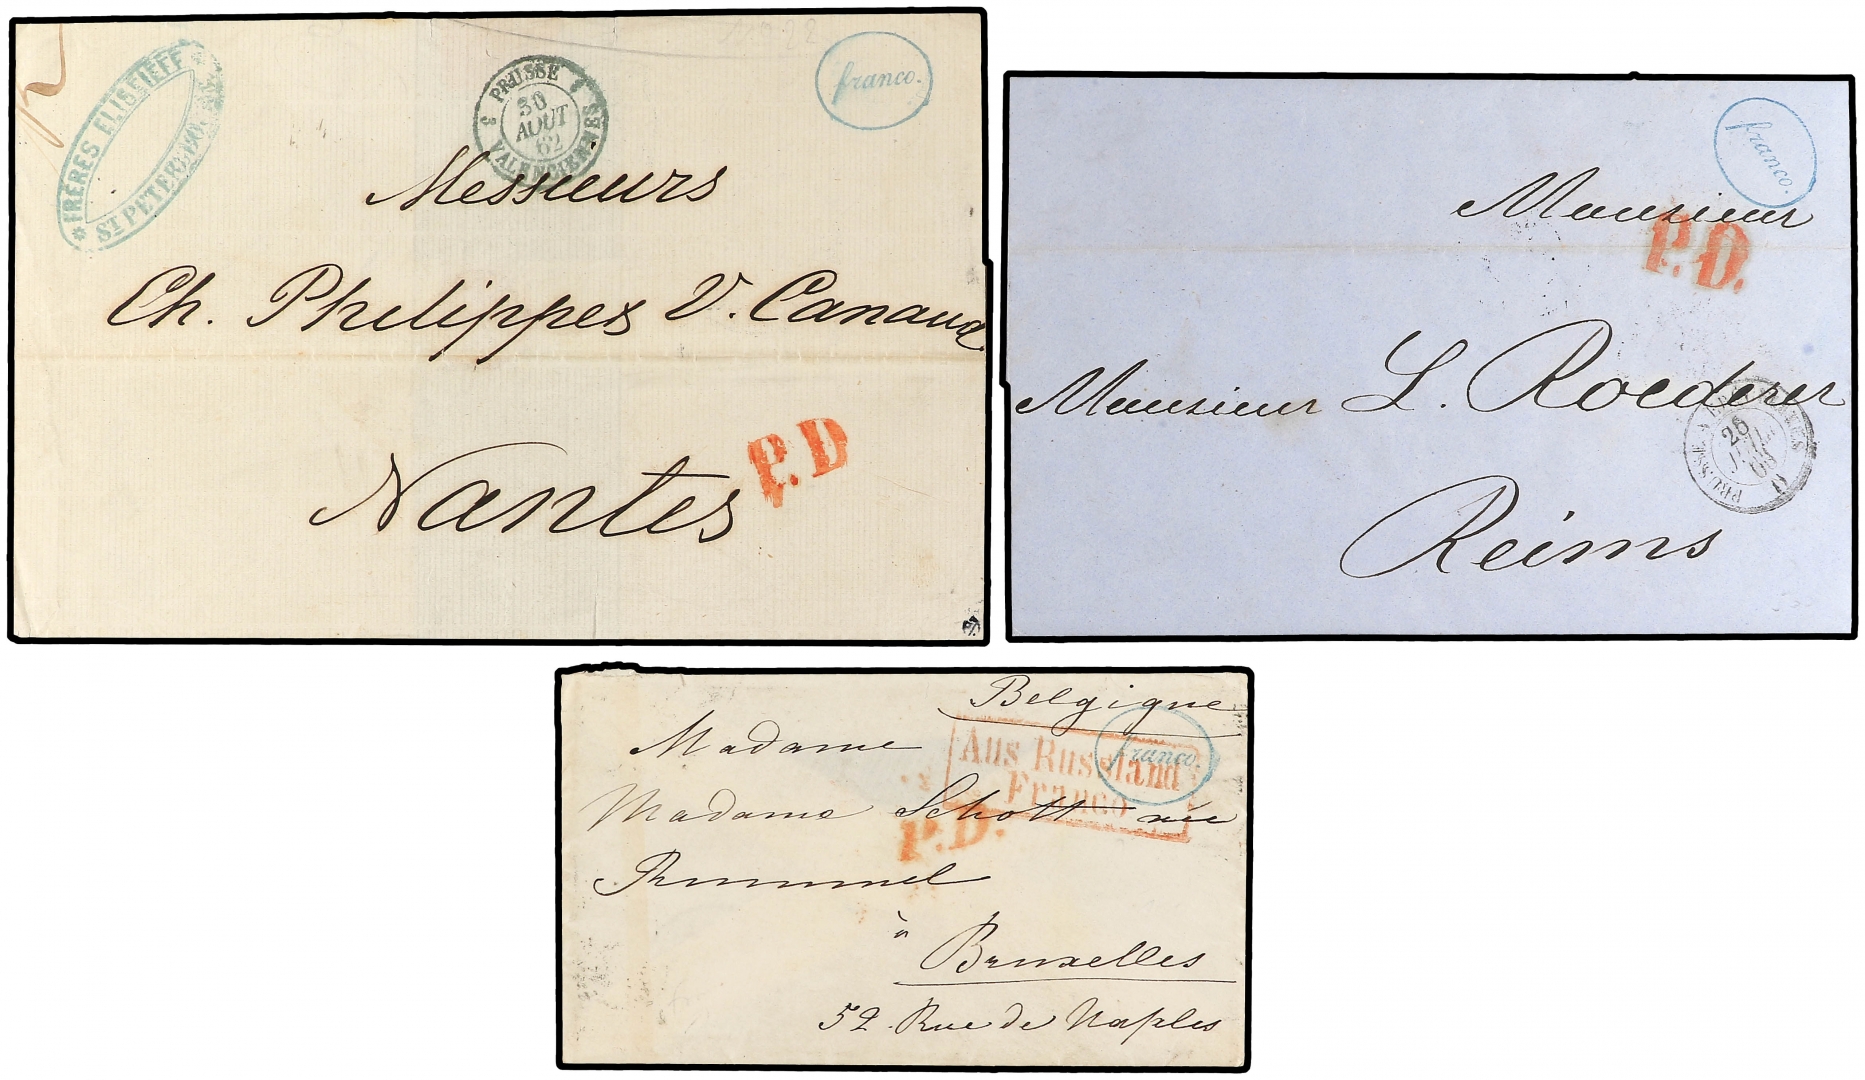 FRÈRES ELISSIEFF
ST PETERBURG
PRUSSE 3
30
AOUT
62
3 VALENCIENNES
franco.
Messieurs
Ch. Philippes V. Canaud
Nantes
P.D
franco.
Monsieur
P.D.
Monsieur L. Roederer
PRUSSE
26
JUIL.
Reims
Belgique
Madame
Aus Russland
Franco
franco.
Madame Schott née
P.D.
Rummel
à
Bruxelles
52 Rue de Naples